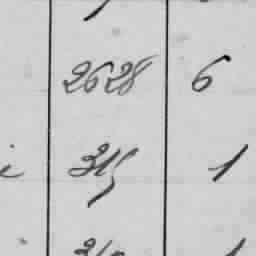 2628 6
315 1